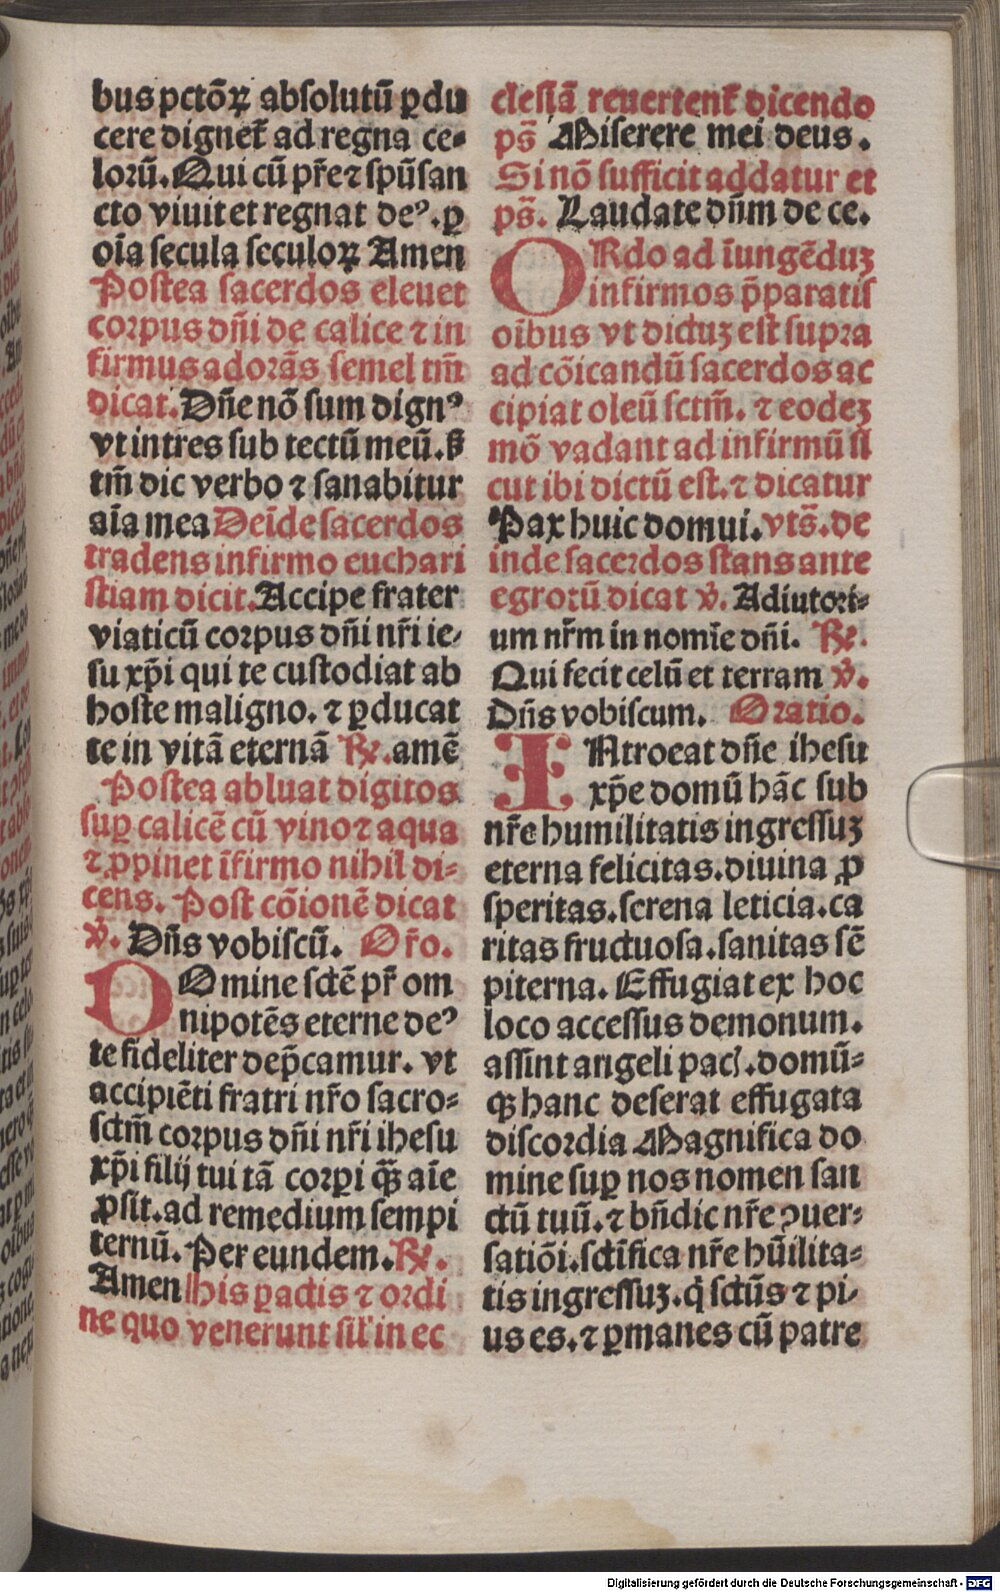 bus pctōꝝ absolutū ꝑdu
cere dignet᷑ ad regna ce-
lorū. Qui cū pr̄e ⁊ spū san
cto viuit et regnat deꝰ. ꝑ
oīa secula seculoꝝ Amen
Postea sacerdos eleuet
corpus dn̄i de calice ⁊ in
firmus adorās semel tm̄
dicat. Dn̄e nō sum dignꝰ
vt intres sub tectū meū. ß
tm̄ dic verbo ⁊ sanabitur
aīa mea Deīde sacerdos
tradens infirmo euchari
stiam dicit. Accipe frater
viaticū corpus dn̄i nr̄i ie-
su xp̄i qui te custodiat ab
hoste maligno. ⁊ ꝑducat
te in vitā eternā ℟. amē
Postea abluat digitos
suꝑ calicē cū vino ⁊ aqua
⁊ ꝓpinet īfirmo nihil di-
cens. Post cōionē dicat
℣. Dn̄s vobiscū. Or̄o.
DOmine sctē pr̄ om
nipotēs eterne deꝰ
te fideliter dep̄camur. vt
accipiēti fratri nr̄o sacro-
sctm̄ corpus dn̄i nr̄i ihesu
xp̄i filij tui tā corpi qꝫ̄ aīe
ꝓsit. ad remedium sempi
ternū. Per eundem. ℟.
Amen his ꝑactis ⁊ ordi
ne quo venerunt sil' in ec
clesiā reuertent᷑ dicendo
ps̄ Miserere mei deus.
Si nō sufficit addatur et
ps̄. Laudate dn̄m de ce.
ORdo ad īungēduꝫ
infirmos p̄paratis
oībus vt dictuꝫ est supra
ad cōicandū sacerdos ac
cipiat oleū sctm̄. ⁊ eodeꝫ
mō vadant ad infirmū si
cut ibi dictū est. ⁊ dicatur
Pax huic domui. vts̄. de
inde sacerdos stans ante
egrotū dicat ℣. Adiutori-
um nr̄m in nomīe dn̄i. ℟.
Qui fecit celū et terram ℣.
Dn̄s vobiscum. Oratio.
INtroeat dn̄e ihesu
xp̄e domū hāc sub
nr̄e humilitatis ingressuꝫ
eterna felicitas. diuina ꝓ
speritas. serena leticia. ca
ritas fructuosa. sanitas sē
piterna. Effugiat ex hoc
loco accessus demonum.
assint angeli pacꝭ. domū-
qꝫ hanc deserat effugata
discordia Magnifica do
mine suꝑ nos nomen san
ctū tuū. ⁊ bn̄dic nr̄e ꝯuer-
satiōi. sctīfica nr̄e hūilita-
tis ingressuꝫ. q̇ sctūs ⁊ pi-
us es. ⁊ ꝑmanes cū patre
Digitalisierung gefördert durch die Deutsche Forschungsgemeinschaft - DFG